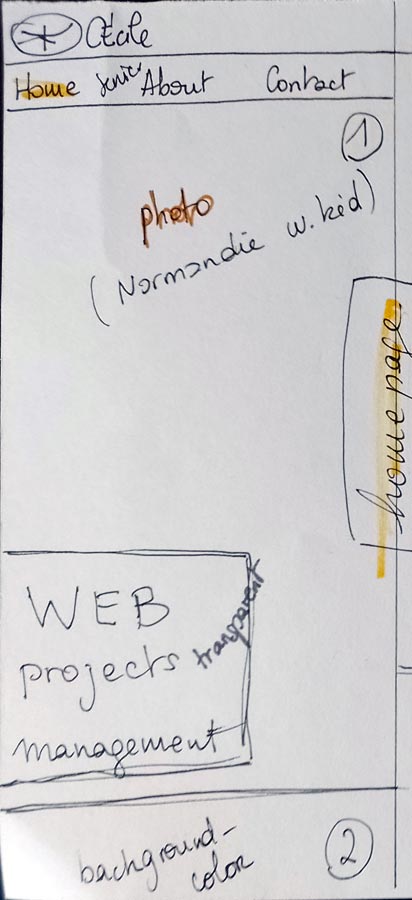 Cécile
Home Service About Contact
1
photo
(Normandie w. kid)
home page
WEB
projects
management
transparent
background-
color
2